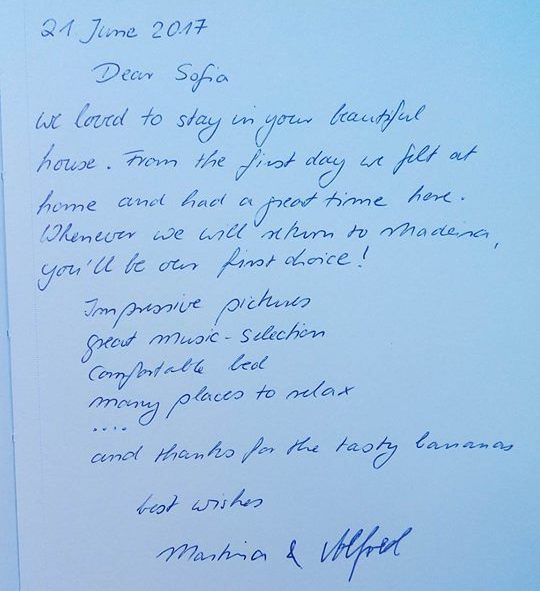 21 June 2017
Dear Sofia
we loved to stay in your beautiful
house. From the first day we felt at
home and had a great time here.
Whenever we will return to Madeira,
you'll be our first choice!
Impressive pictures
great music-selection
comfortable bed
many places to relax
....
and thanks for the tasty bananas
best wishes
Martina & Alfred